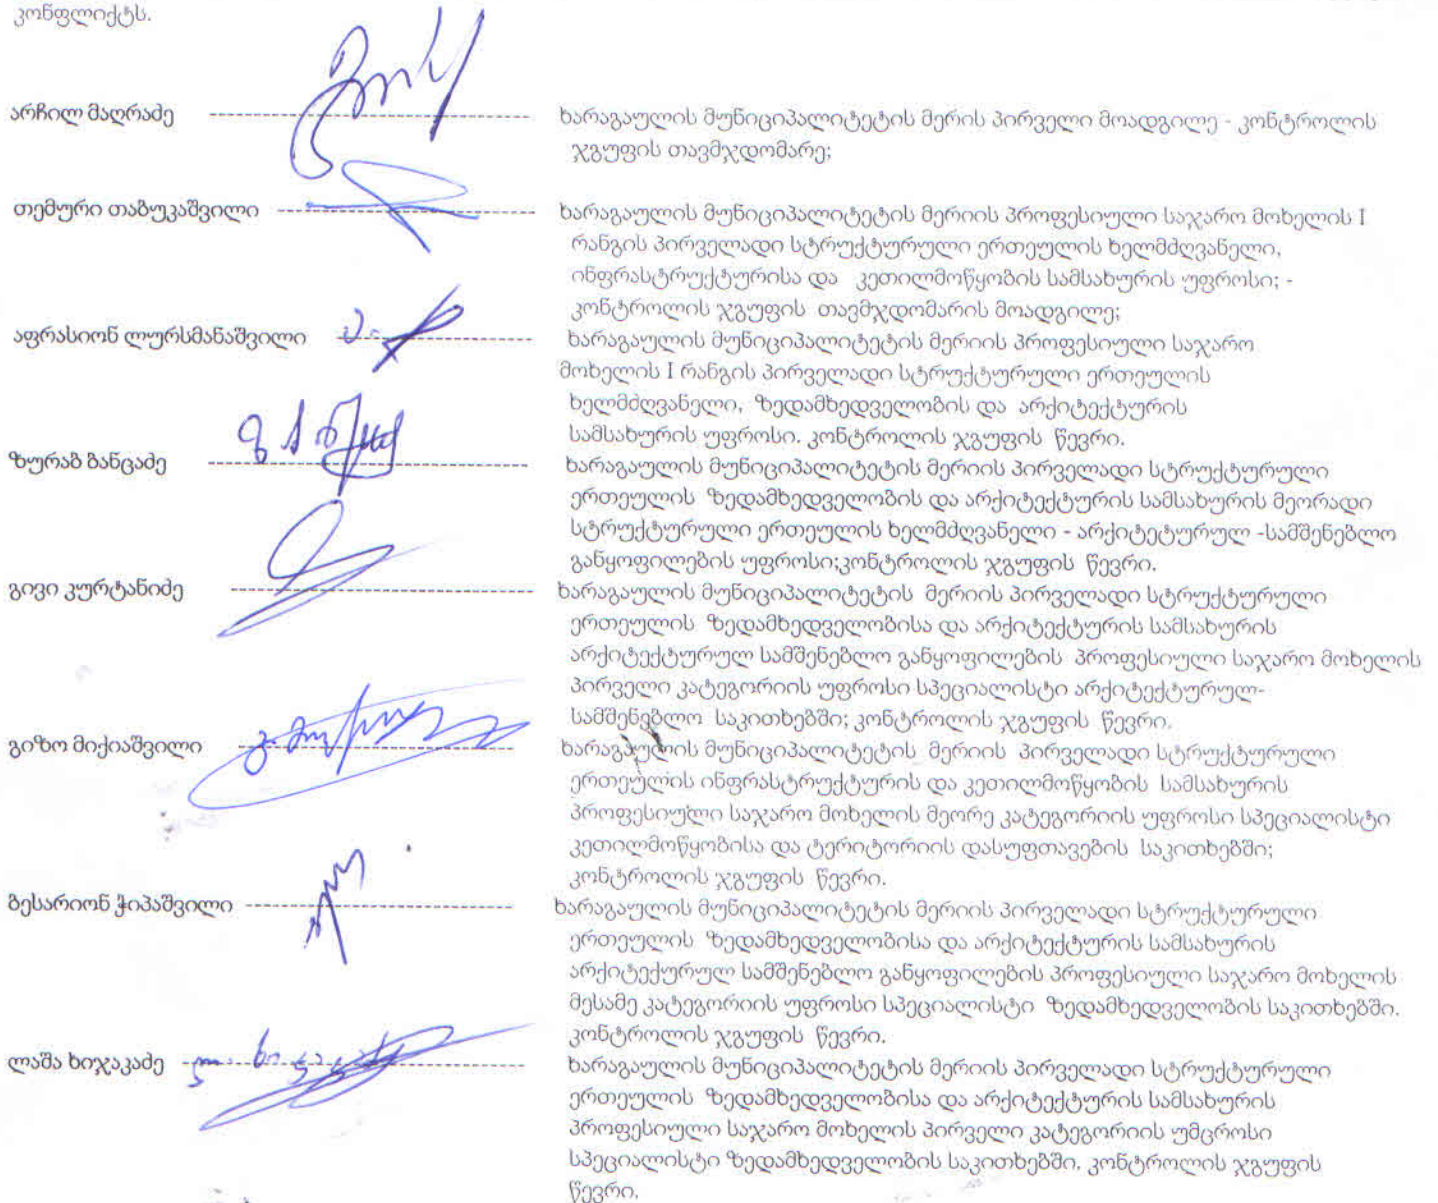 კონფლიქტს.
არჩილ მაღრაძე
ხარაგაულის მუნიციპალიტეტის მერის პირველი მოადგილე - კონტროლის
ჯგუფის თავმჯდომარე;
თემური თაბუკაშვილი
ხარაგაულის მუნიციპალიტეტის მერიის პროფესიული საჯარო მოხელის I
რანგის პირველადი სტრუქტურული ერთეულის ხელმძღვანელი,
ინფრასტრუქტურისა და კეთილმოწყობის სამსახურის უფროსი; -
კონტროლის ჯგუფის თავმჯდომარის მოადგილე;
აფრასიონ ლურსმანაშვილი
ხარაგაულის მუნიციპალიტეტის მერიის პროფესიული საჯარო
მოხელის I რანგის პირველადი სტრუქტურული ერთეულის
ხელმძღვანელი, ზედამხედველობის და არქიტექტურის
სამსახურის უფროსი. კონტროლის ჯგუფის წევრი.
ზურაბ ბანცაძე
ხარაგაულის მუნიციპალიტეტის მერიის პირველადი სტრუქტურული
ერთეულის ზედამხედველობის და არქიტექტურის სამსახურის მეორადი
სტრუქტურული ერთეულის ხელმძღვანელი - არქიტეტურულ -სამშენებლო
განყოფილების უფროსი;კონტროლის ჯგუფის წევრი.
გივი კურტანიძე
ხარაგაულის მუნიციპალიტეტის მერიის პირველადი სტრუქტურული
ერთეულის ზედამხედველობისა და არქიტექტურის სამსახურის
არქიტექტურულ სამშენებლო განყოფილების პროფესიული საჯარო მოხელის
პირველი კატეგორიის უფროსი სპეციალისტი არქიტექტურულ-
სამშენებლო საკითხებში; კონტროლის ჯგუფის წევრი.
გიზო მიქიაშვილი
ხარაგაულის მუნიციპალიტეტის მერიის პირველადი სტრუქტურული
ერთეულის ინფრასტრუქტურის და კეთილმოწყობის სამსახურის
პროფესიული საჯარო მოხელის მეორე კატეგორიის უფროსი სპეციალისტი
კეთილმოწყობისა და ტერიტორიის დასუფთავების საკითხებში;
კონტროლის ჯგუფის წევრი.
ბესარიონ ჭიპაშვილი
ხარაგაულის მუნიციპალიტეტის მერიის პირველადი სტრუქტურული
ერთეულის ზედამხედველობისა და არქიტექტურის სამსახურის
არქიტექურულ სამშენებლო განყოფილების პროფესიული საჯარო მოხელის
მესამე კატეგორიის უფროსი სპეციალისტი ზედამხედველობის საკითხებში.
კონტროლის ჯგუფის წევრი.
ლაშა ხიჯაკაძე
ხარაგაულის მუნიციპალიტეტის მერიის პირველადი სტრუქტურული
ერთეულის ზედამხედველობისა და არქიტექტურის სამსახურის
პროფესიული საჯარო მოხელის პირველი კატეგორიის უმცროსი
სპეციალისტი ზედამხედველობის საკითხებში, კონტროლის ჯგუფის
წევრი.